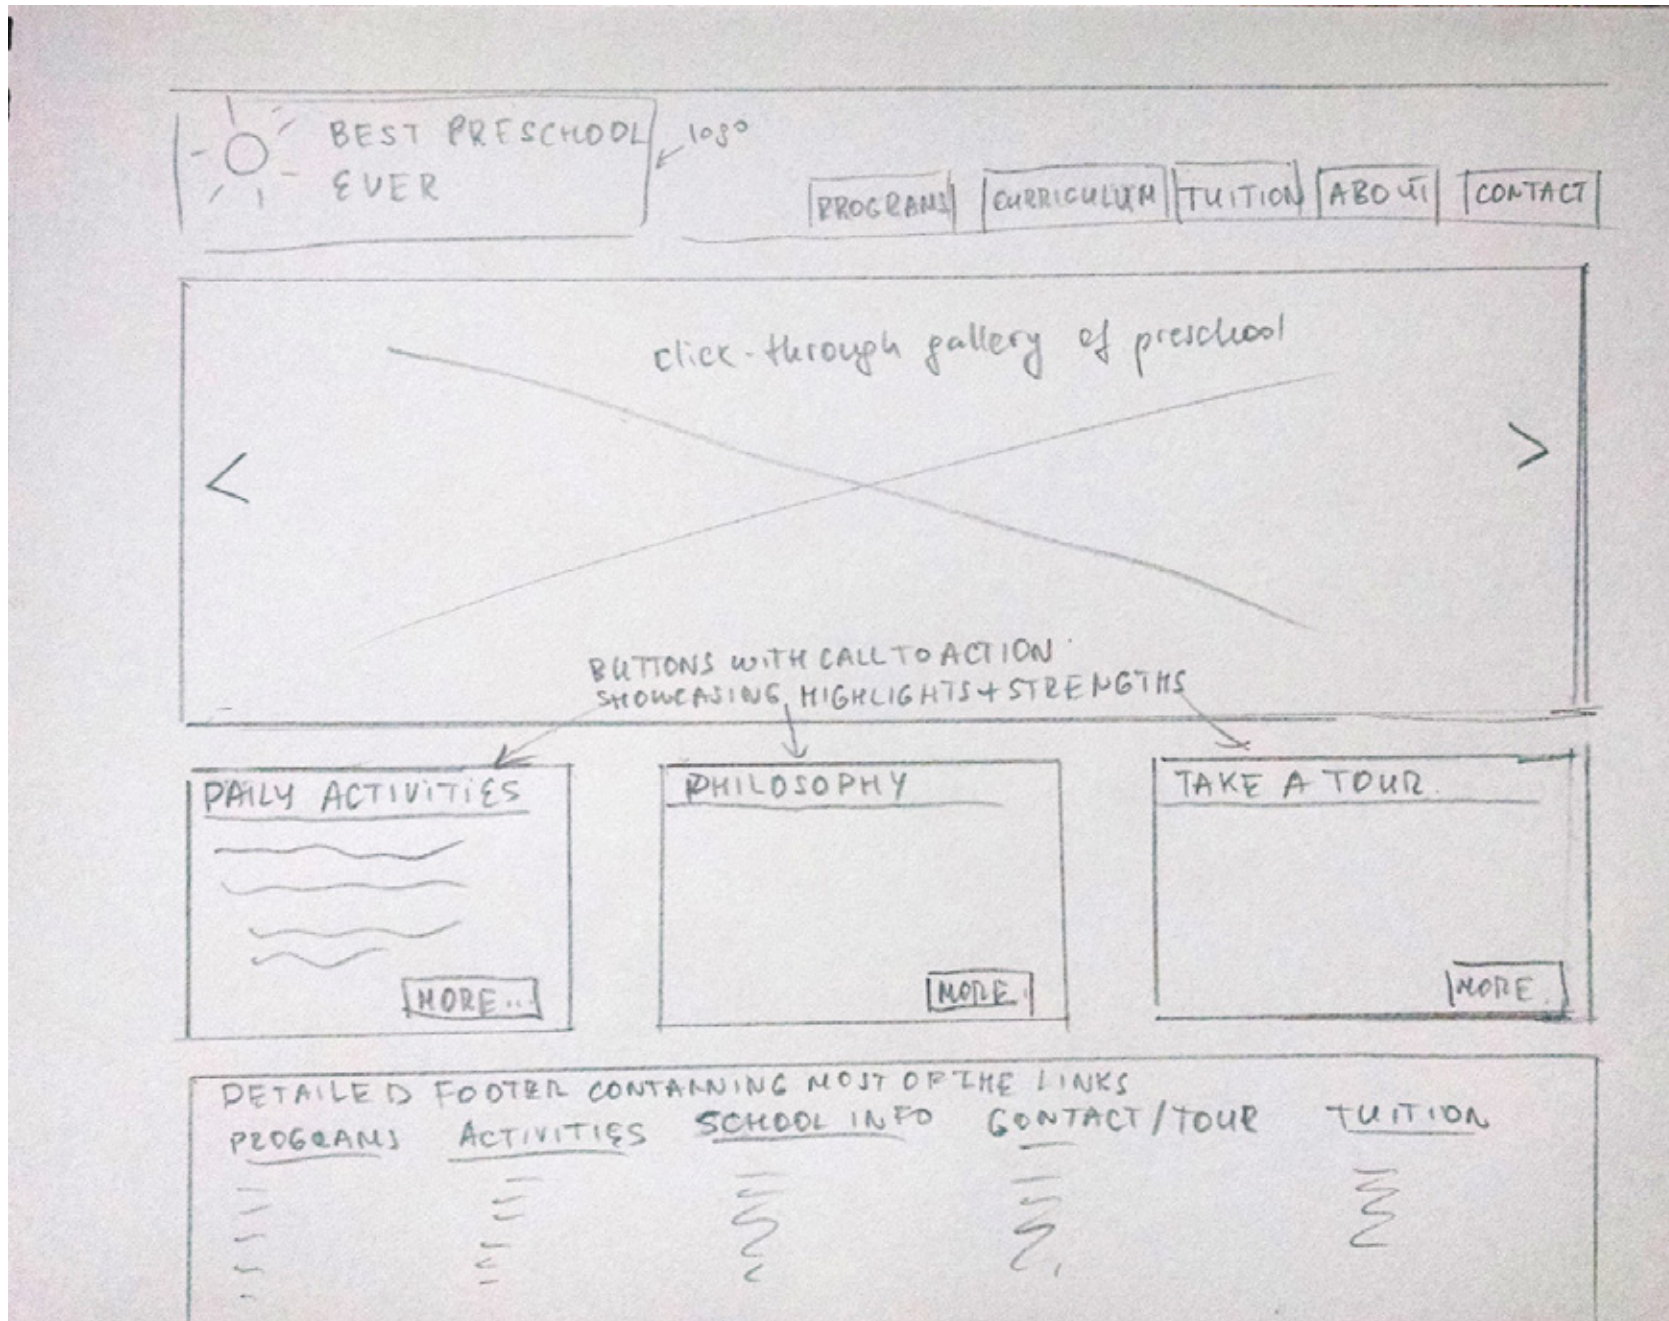 BEST PRESCHOOL
EVER
logo
PROGRAMS
CURRICULUM
TUITION
ABOUT
CONTACT
click-through gallery of preschool
<
>
BUTTONS WITH CALL TO ACTION
SHOWCASING HIGHLIGHTS + STRENGTHS
DAILY ACTIVITIES
MORE...
PHILOSOPHY
MORE.
TAKE A TOUR.
MORE.
DETAILED FOOTER CONTANNING MOST OF THE LINKS
PROGRAMS
ACTIVITIES
SCHOOL INFO
CONTACT/TOUR
TUITION